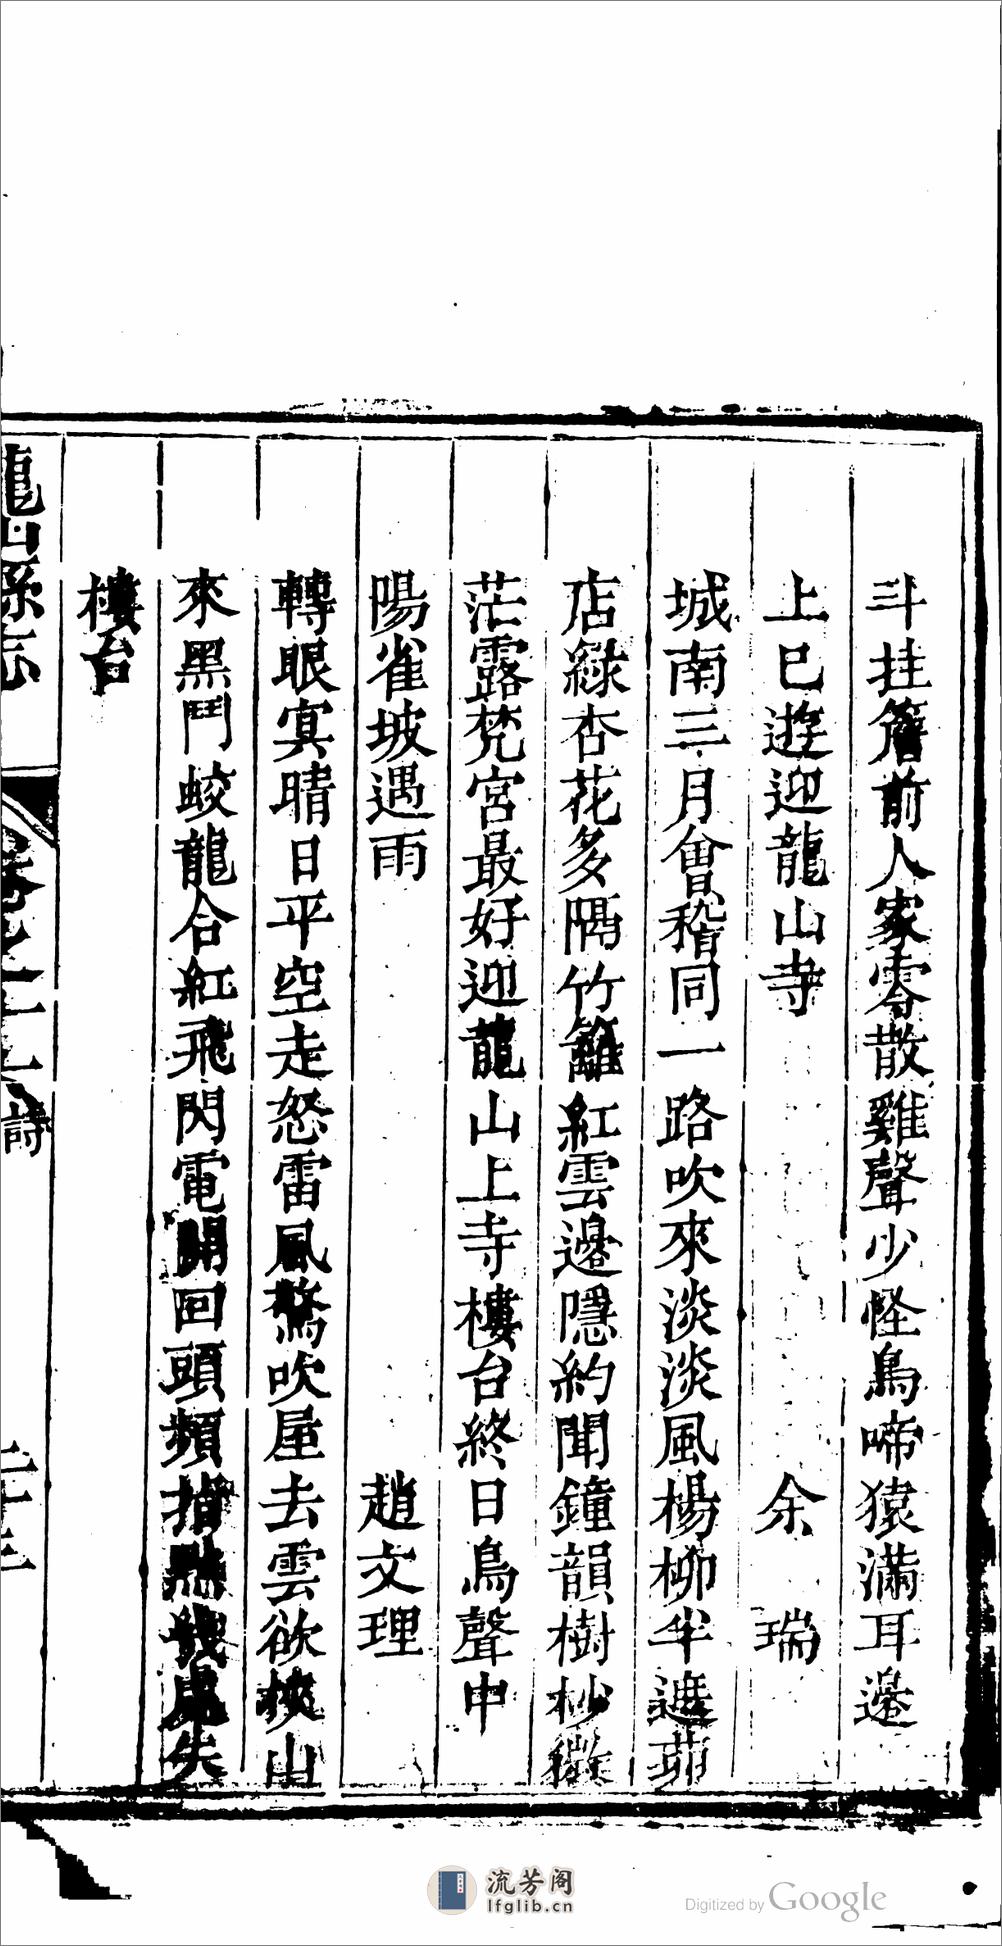 斗挂簷前人家零散雞聲少怪鳥啼猿滿耳邊
上巳遊迎龍山寺　余　瑞
城南三月會稽同一路吹來淡淡風楊柳半遮茆
店綠杏花多隔竹籬紅雲邊隱約聞鐘韻樹杪微
茫露梵宮最好迎龍山上寺樓台終日鳥聲中
陽雀坡遇雨　趙文理
轉眼寞晴日平空走怒雷風驚吹屋去雲欲挾山
來黑鬥蛟龍合紅飛閃電開回頭頻指點幾處失
樓台
龍山縣志　卷之十七　詩　二十三
流芳阁
lfglib.cn
Digitized by Google